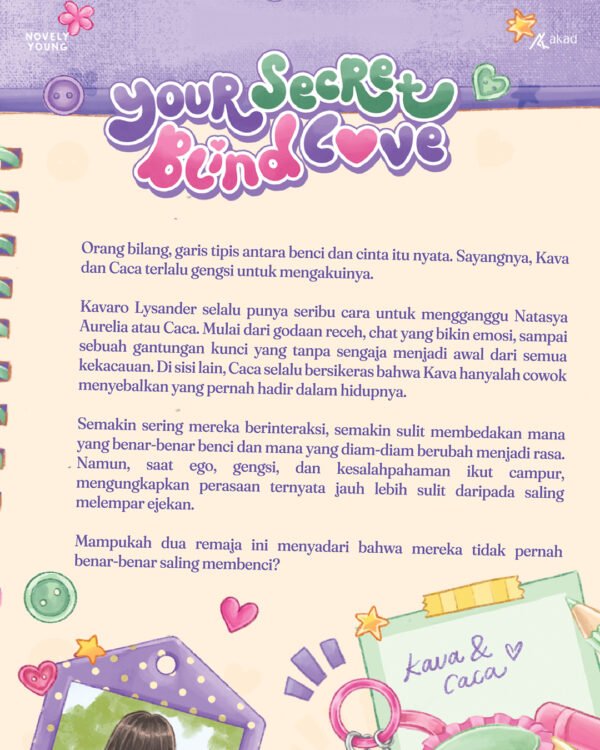 NOVELY
YOUNG
akad
YOUR SECRET
BLIND LOVE
Orang bilang, garis tipis antara benci dan cinta itu nyata. Sayangnya, Kava
dan Caca terlalu gengsi untuk mengakuinya.
Kavaro Lysander selalu punya seribu cara untuk mengganggu Natasya
Aurelia atau Caca. Mulai dari godaan receh, chat yang bikin emosi, sampai
sebuah gantungan kunci yang tanpa sengaja menjadi awal dari semua
kekacauan. Di sisi lain, Caca selalu bersikeras bahwa Kava hanyalah cowok
menyebalkan yang pernah hadir dalam hidupnya.
Semakin sering mereka berinteraksi, semakin sulit membedakan mana
yang benar-benar benci dan mana yang diam-diam berubah menjadi rasa.
Namun, saat ego, gengsi, dan kesalahpahaman ikut campur,
mengungkapkan perasaan ternyata jauh lebih sulit daripada saling
melempar ejekan.
Mampukah dua remaja ini menyadari bahwa mereka tidak pernah
benar-benar saling membenci?
Kava &
Caca